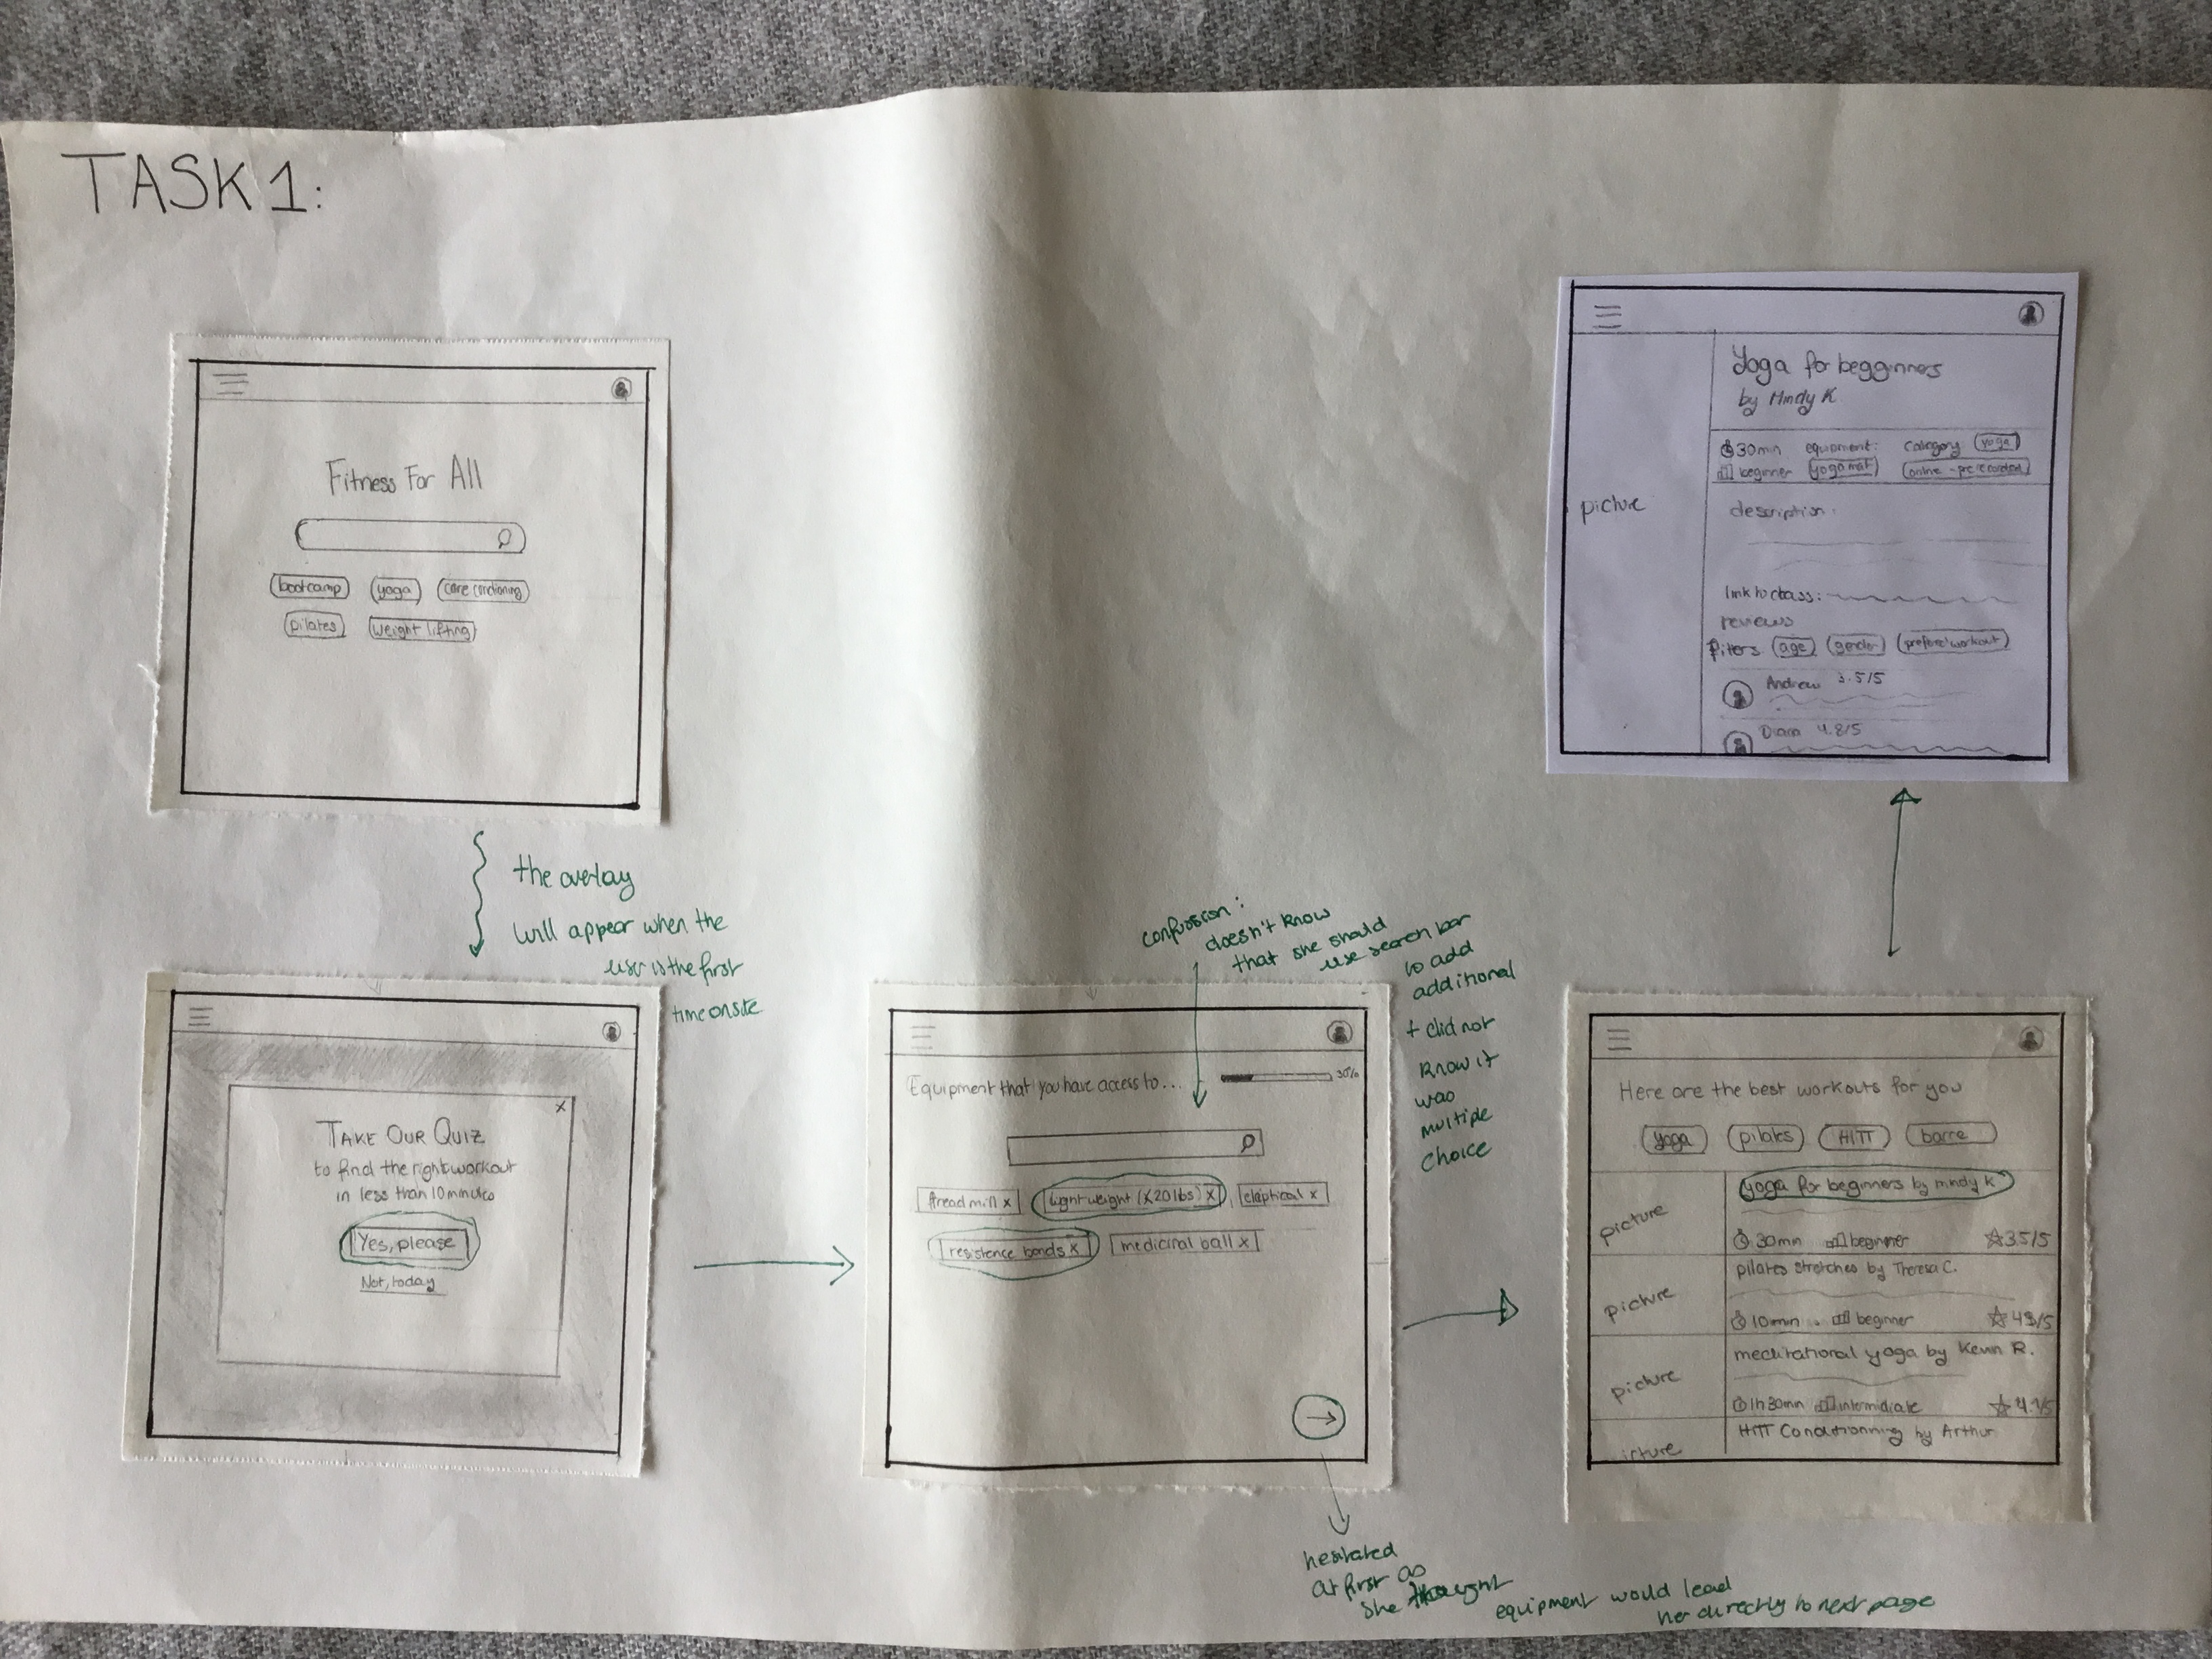 TASK 1:
Fitness For All
bootcamp yoga core conditioning
pilates weight lifting
the overlay
will appear when the
user is the first
time on site
TAKE OUR QUIZ
to find the right workout
in less than 10 minutes
x
Yes, please
Not, today
confussion:
doesn't know
that she should
use search bar
to add
additional
+ did not
know it
was
multiple
choice
Equipment that you have access to... 30%
treadmill x light weight (<20 lbs) x eliptical x
resistence bands x medicinal ball x
hesitated
at first as
she thought
equipment would lead
her directly to next page
Here are the best workouts for you
yoga pilates HITT barre
picture
yoga for beginners by mindy K
30min beginner 3.5/5
picture
pilates stretches by Theresa C.
10min beginner
picture
meditational yoga by Kevin R.
1h30min intermidiate 4.1/5
icture
HITT Conditionning by Arthur
Yoga for begginners
by Mindy K
30min equipment: category yoga
beginner yoga mat online - pre recorded
picture
description:
link to class:
reviews
filters age gender prefered workout
Andrew 3.5/5
Diana 4.8/5